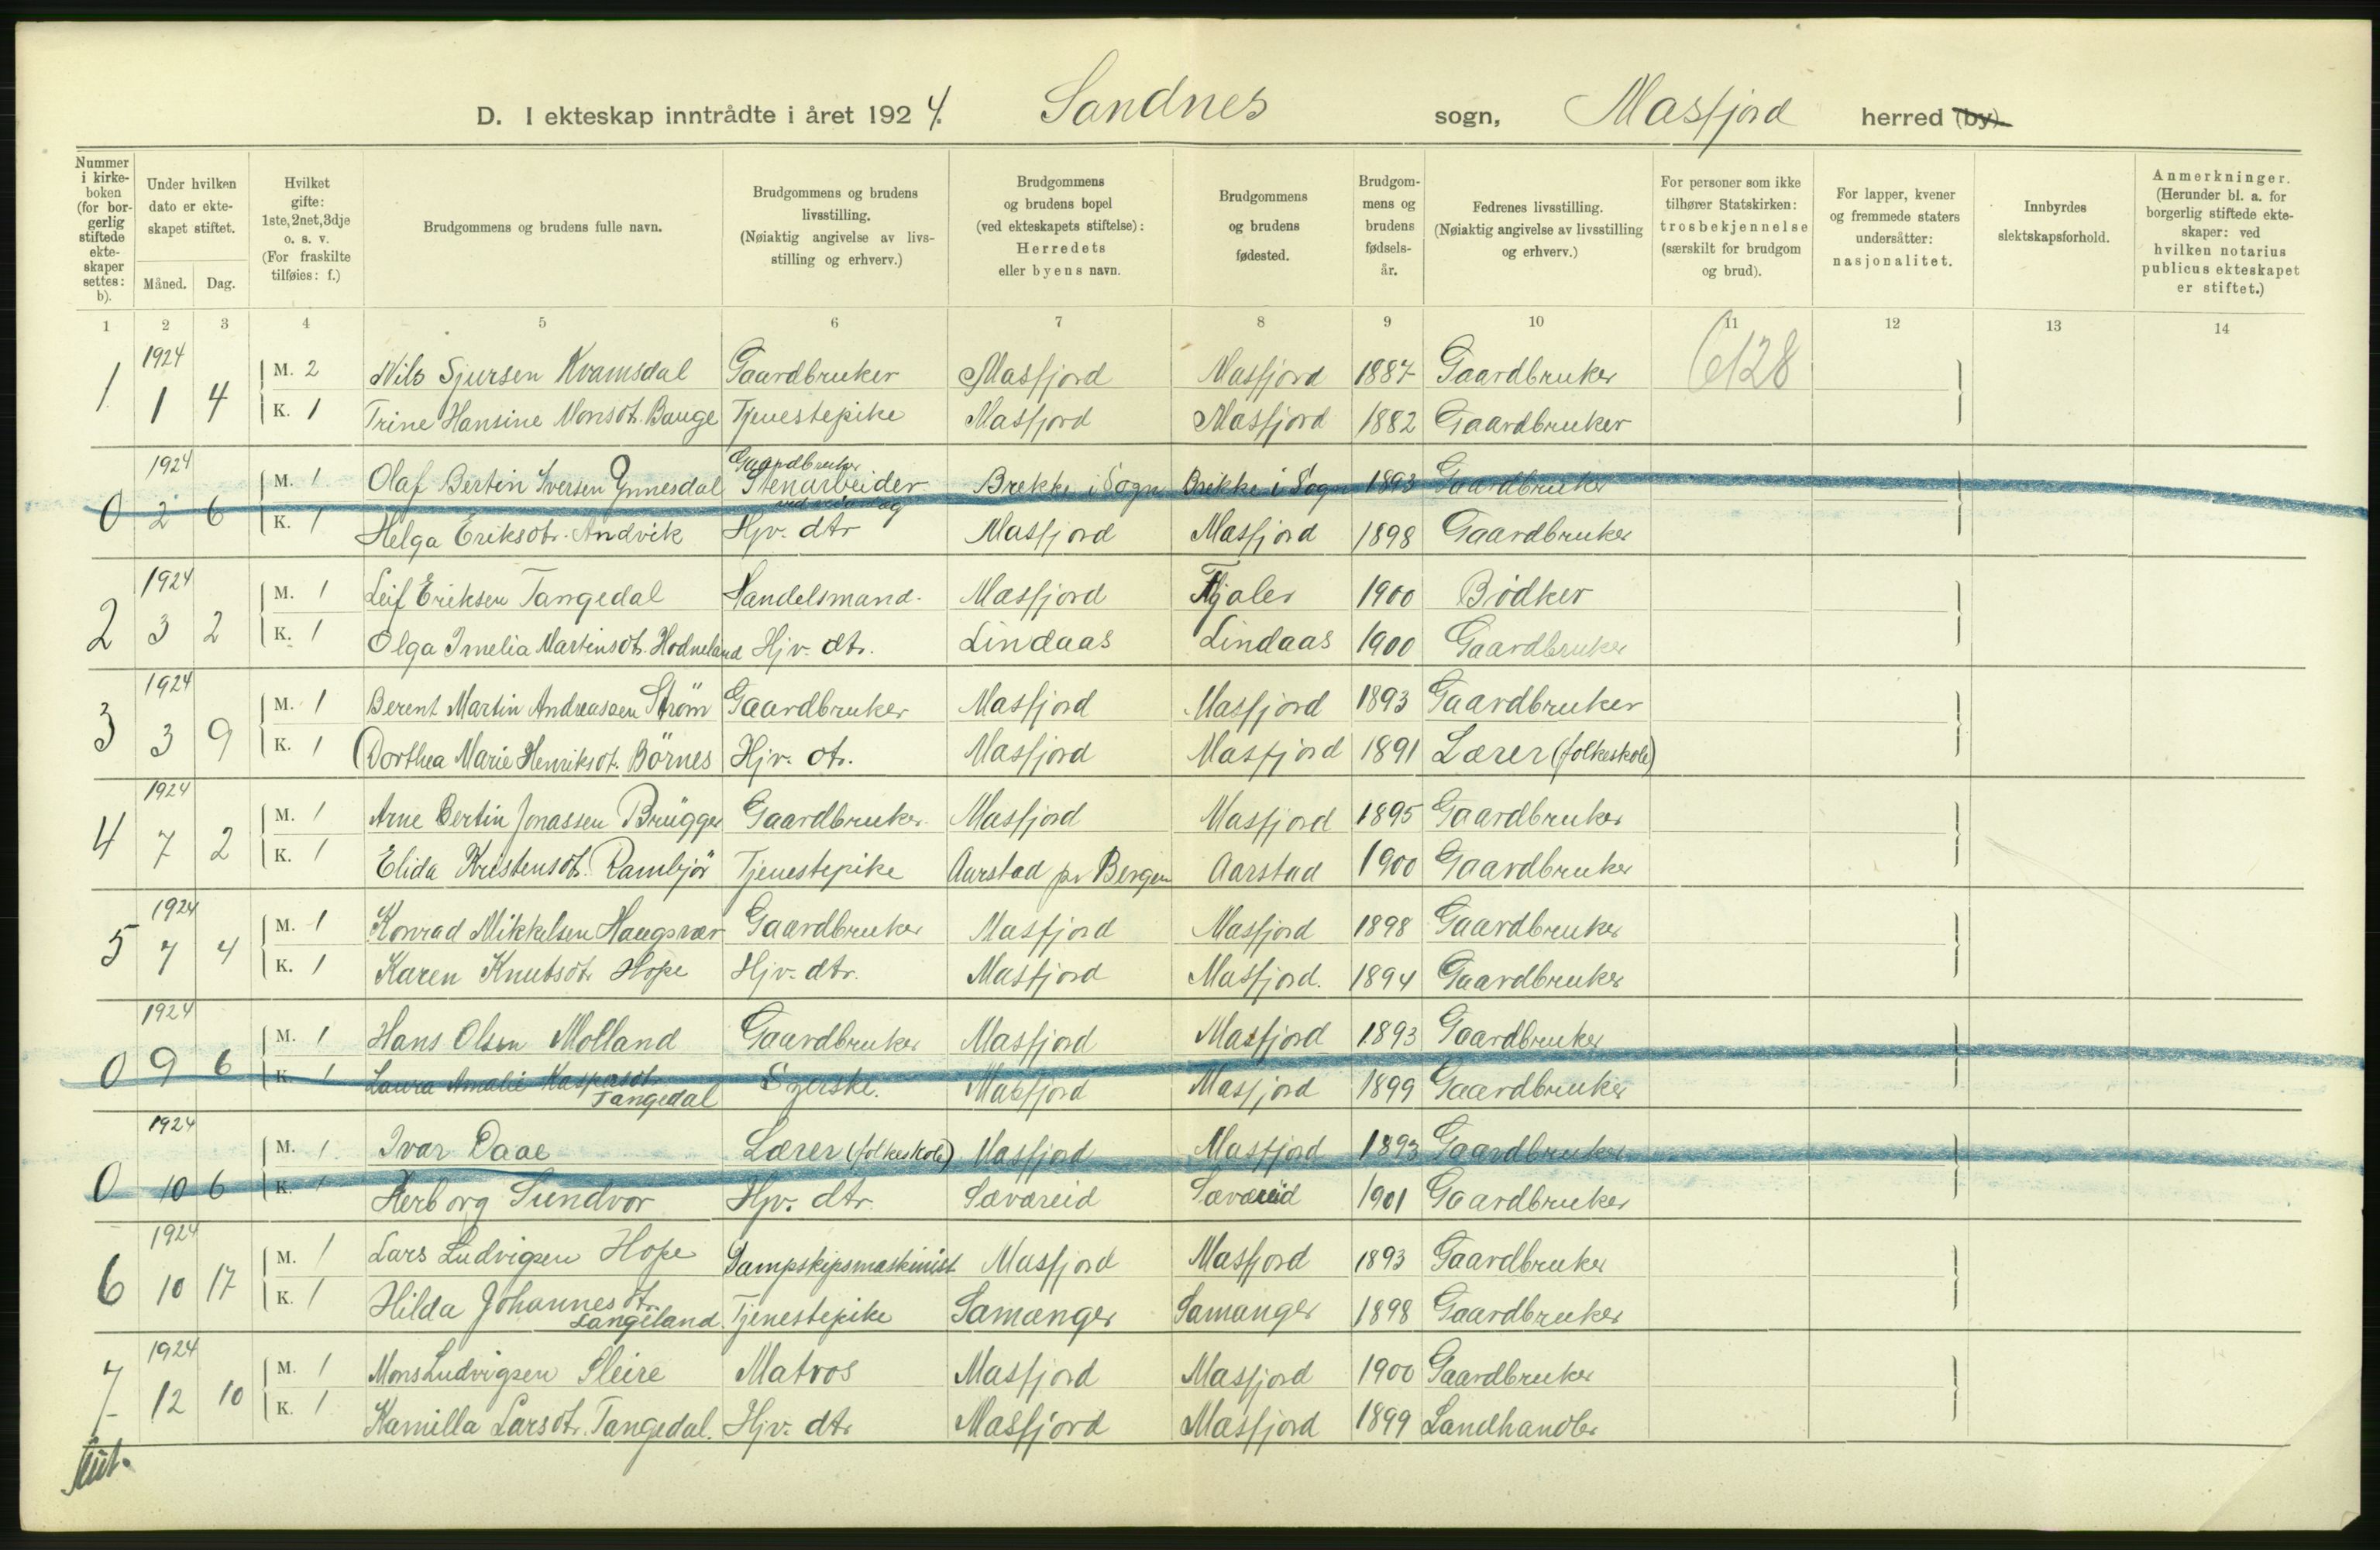 D. I ekteskap inntrådte i året 1924. Sandnes sogn, Masfjord herred (by)
Nummer i kirkeboken (for borgerlig stiftede ekteskaper settes: b).
Under hvilken dato er ekteskapet stiftet.
Måned. Dag.
Hvilket gifte: 1ste, 2net, 3dje o. s. v. (For fraskilte tilføies: f.)
Brudgommens og brudens fulle navn.
Brudgommens og brudens livsstilling. (Nøiaktig angivelse av livsstilling og erhverv.)
Brudgommens og brudens bopel (ved ekteskapets stiftelse): Herredets eller byens navn.
Brudgommens og brudens fødested.
Brudgommens og brudens fødselsår.
Fedrenes livsstilling. (Nøiaktig angivelse av livsstilling og erhverv.)
For personer som ikke tilhører Statskirken: trosbekjennelse (særskilt for brudgom og brud).
For lapper, kvener og fremmede staters undersåtter: nasjonalitet.
Innbyrdes slektskapsforhold.
Anmerkninger. (Herunder bl. a. for borgerlig stiftede ekteskaper: ved hvilken notarius publicus ekteskapet er stiftet.)
1 2 3 4 5 6 7 8 9 10 11 12 13 14
6128
1924
1 1 4 M. 2 Nils Sjursen Kvamsdal Gaardbruker Masfjord Masfjord 1887 Gaardbruker
K. 1 Trine Hansine Monsdt. Bauge Tjenestepike Masfjord Masfjord 1882 Gaardbruker
1924
0 2 6 M. 1 Olaf Bertin Iversen Ynnesdal Gaardbruker Stenarbeider Brekke i Sogn Brekke i Sogn 1893 Gaardbruker
K. 1 Helga Eriksdtr. Andvik Hjv. dtr Masfjord Masfjord 1898 Gaardbruker
1924
2 3 2 M. 1 Leif Eriksen Tangedal Handelsmand. Masfjord Fjaler 1900 Bødker
K. 1 Olga Imelia Martinsdt. Hodneland Hjv. dtr. Lindaas Lindaas 1900 Gaardbruker
1924
3 3 9 M. 1 Berent Martin Andreassen Strøm Gaardbruker Masfjord Masfjord 1893 Gaardbruker
K. 1 Dorthea Marie Henriksdt. Börnes Hjv. dt. Masfjord Masfjord 1891 Lærer (folkeskole)
1924
4 7 2 M. 1 Arne Bertin Jonassen Brügger Gaardbruker Masfjord Masfjord 1895 Gaardbruker
K. 1 Elida Kristensdt. Rambjör Tjenestepike Aarstad pr Bergen Aarstad 1900 Gaardbruker
1924
5 7 4 M. 1 Konrad Mikkelsen Haugsvær Gaardbruker Masfjord Masfjord 1898 Gaardbruker
K. 1 Karen Knutsdt. Hope Hjv. dtr. Masfjord Masfjord. 1894 Gaardbruker
1924
0 9 6 M. 1 Hans Olsen Molland Gaardbruker Masfjord Masfjord 1893 Gaardbruker
K. 1 Laura Amalie Kaspersdt. Tangedal Syerske. Masfjord Masfjord 1899 Gaardbruker
1924
0 10 6 M. 1. Ivar Daae Lærer (folkeskole) Masfjord Masfjord 1893 Gaardbruker
K. 1 Herborg Sundvor Hjv. dtr. Sævareid Sævareid 1901 Gaardbruker
1924
6 10 17 M. 1 Lars Ludvigsen Hope Dampskipsmaskinist Masfjord Masfjord 1893 Gaardbruker
K. 1 Hilda Johannesdt. Langeland. Tjenestepike Samanger Samanger 1898 Gaardbruker
1924
7 12 10 M. 1 Mons Ludvigsen Sleire Matros Masfjord Masfjord 1900 Gaardbruker
K. 1 Kamilla Larsdt. Tangedal. Hjv. dtr Masfjord Masfjord 1899 Landhandler